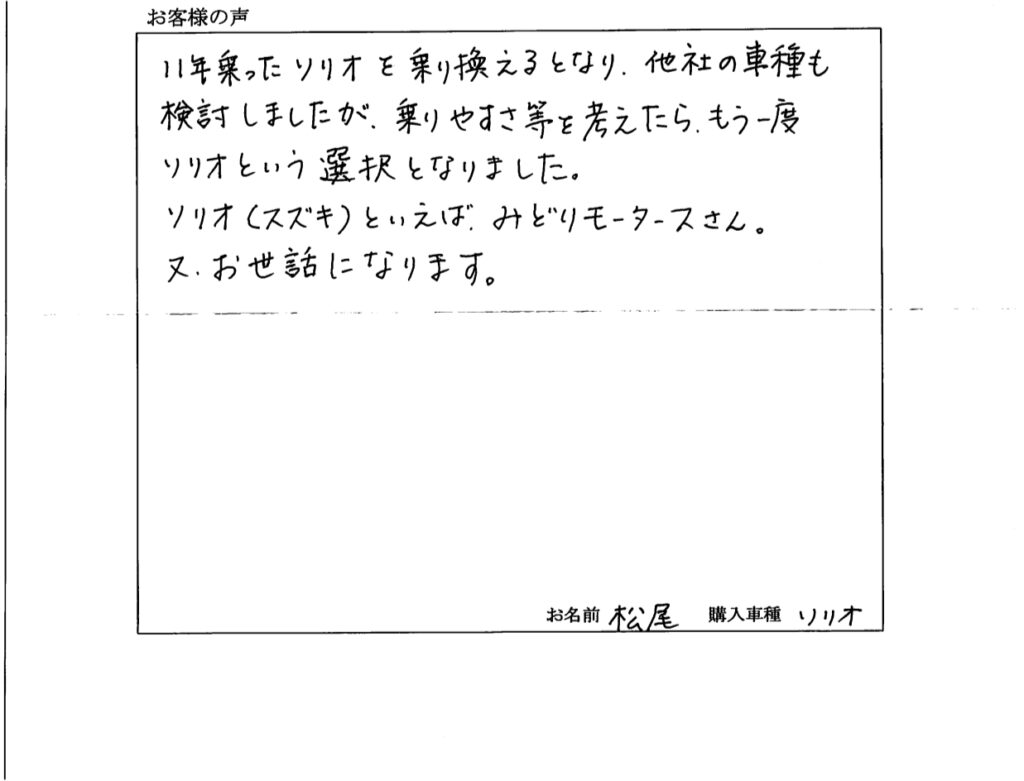 お客様の声
11年乗ったソリオを乗り換えるとなり、他社の車種も
検討しましたが、乗りやすさ等を考えたら、もう一度
ソリオという選択となりました。
ソリオ(スズキ)といえば、みどりモータースさん。
又、お世話になります。
お名前 松尾 購入車種 ソリオ